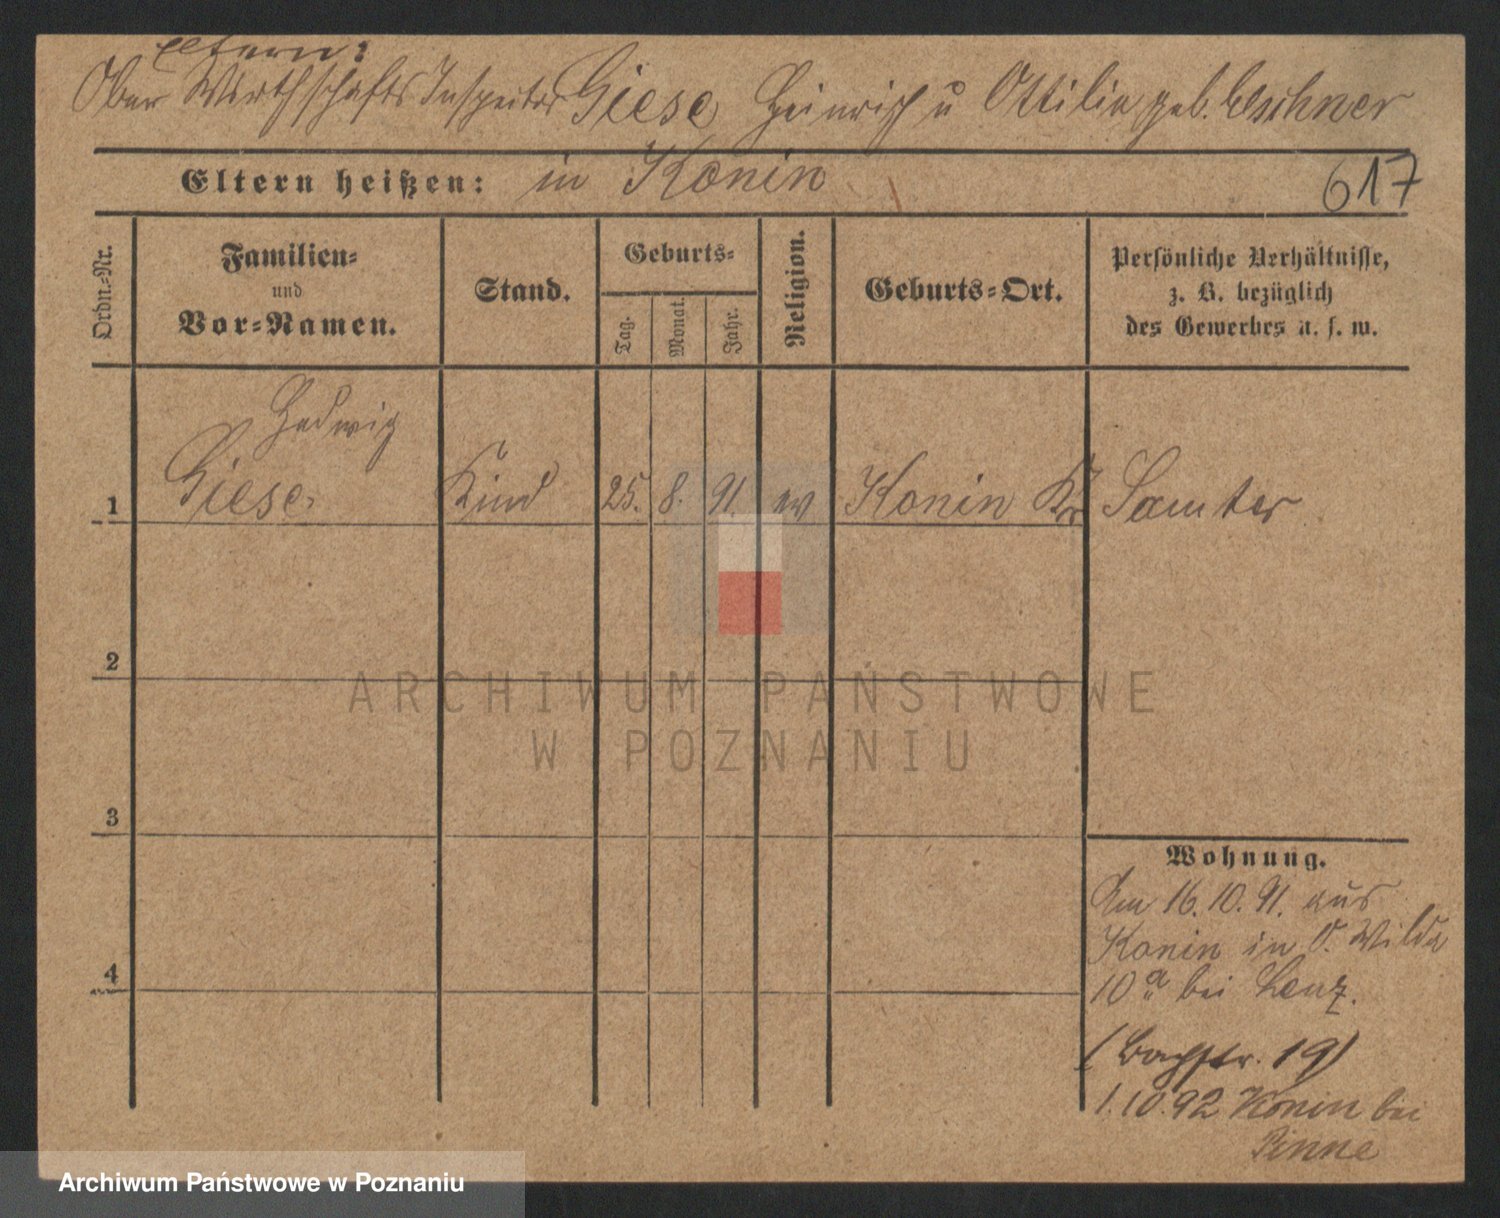 Eltern:
Ober Wirthschafts Inspector Giese Heinrich u Ottilie geb.
Eltern heißen: in Konin
617
Ordn.-Nr.
Familien-
und
Vor-Namen.
Stand.
Geburts-
Tag.
Monat.
Jahr.
Religion.
Geburts-Ort.
Persönliche Verhältnisse,
z. B. bezüglich
des Gewerbes u. s. w.
Hedwig
1 Giese Kind 25. 8. 91. ev Konin Kr Samter
2
ARCHIWUM PAŃSTWOWE
W POZNANIU
3
Wohnung.
Am 16.10.91. aus
Konin in O. Wilda
4
10a bei Lenz.
(Bachstr. 19)
1.10.92 Konin bei
Pinne
Archiwum Państwowe w Poznaniu